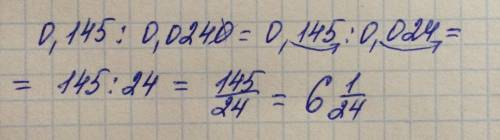 0,145 : 0,0240 = 0,145 : 0,024 =
= 145 : 24 = 145/24 = 6 1/24